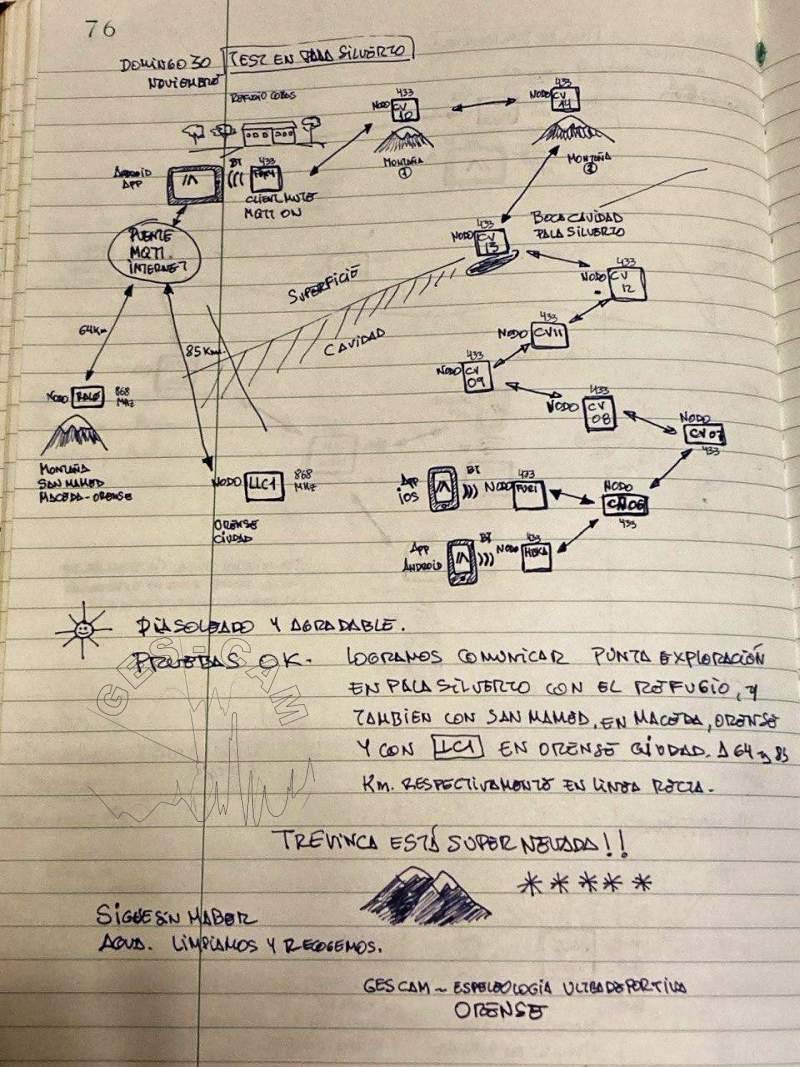 76
DOMINGO 30 TEST EN PALA SILVERTO
NOVIEMBRE
REFUGIO COBOS
433
NODO CV 10
MONTAÑA
1
433
NODO CV 14
MONTAÑA
2
ANDROID
APP
BT
433
CLIENT MUTE
MQTT ON
PUENTE
MQTT.
INTERNET
433
NODO CV 13
BOCA CAVIDAD
PALA SILVERTO
SUPERFICIE
CAVIDAD
433
NODO CV 12
433
NODO CV11
433
NODO CV 09
433
NODO CV 08
NODO
CV07
433
64Km
85Km
NODO 868
MHZ
MONTAÑA
SAN MAMED
MACEDA-ORENSE
NODO LLC1 868
MHZ
ORENSE
CIUDAD
APP
iOS
BT
433
NODO
NODO
CV06
433
APP
ANDROID
BT
433
NODO
DIA SOLEADO Y AGRADABLE.
PRUEBAS OK. LOGRAMOS COMUNICAR PUNTA EXPLORACIÓN
EN PALA SILVERTO CON EL REFUGIO, Y
TAMBIEN CON SAN MAMED, EN MACEDA, ORENSE
Y CON LLC1 EN ORENSE CIUDAD. A 64 y 85
Km. RESPECTIVAMENTE EN LINEA RECTA.
GES-CAM
TREVINCA ESTÁ SUPER NEVADA!!
SIGUE SIN HABER
AGUA. LIMPIAMOS Y RECOGEMOS.
GESCAM ~ ESPELEOLOGÍA ULTRADEPORTIVA
ORENSE